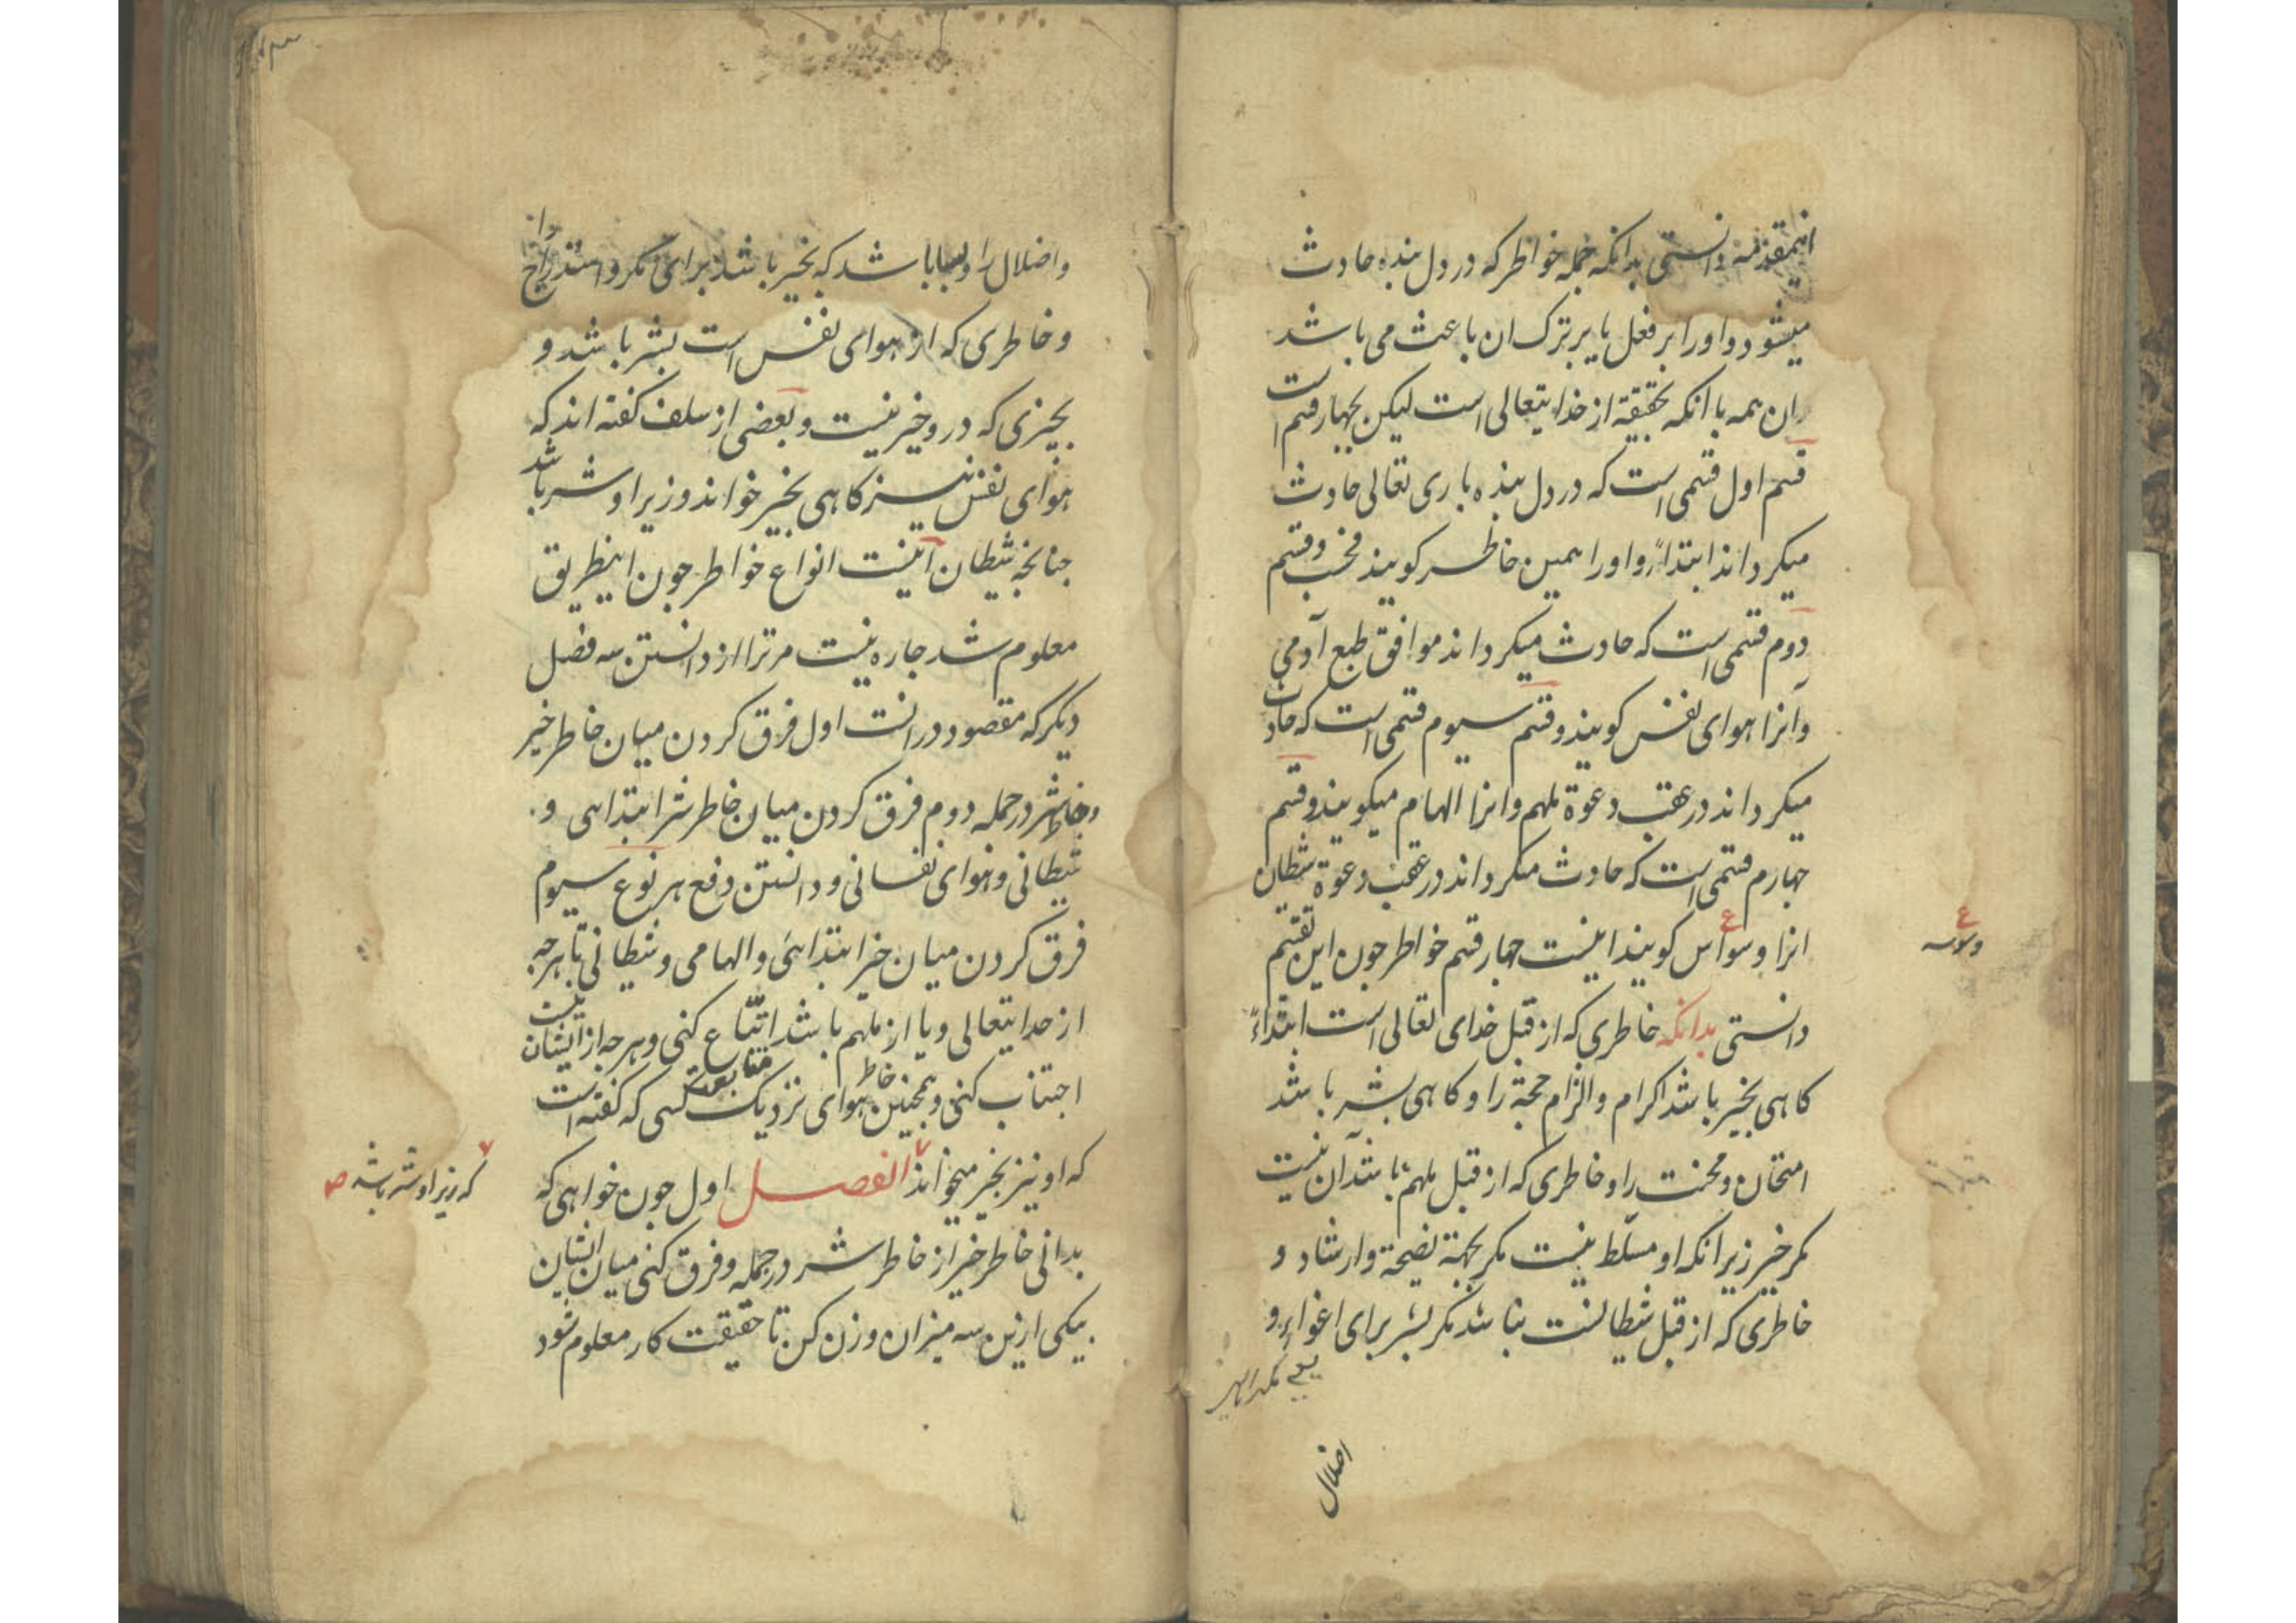 اینمقدمه دانستی بدانکه جمله خواطر که در دل بنده حادث
میشود و اورا بر فعل یا بر ترک ان باعث می باشد
ان همه با انکه بحقیقة از خدایتعالی است لیکن بچهار قسم است
قسم اول قسمی است که در دل بنده باری تعالی حادث
میکرداند ابتداءً و اورا همین خاطر کویند فحسب و قسم
دوم قسمی است که حادث میکرداند موافق طبع آدمی
وآنرا هوای نفس کویند و قسم سیوم قسمی است که حادث
میکرداند در عقب دعوة ملهم وانرا الهام میکویند و قسم
چهارم قسمی است که حادث میکرداند در عقب دعوة شیطان
انرا وسواس کویند اینست چهار قسم خواطر چون این تقسیم
وسوسه
دانستی بدانکه خاطری که از قبل خدای تعالی است ابتداءً
کاهی بخیر باشد اکرام و الزام حجة را و کاهی بشر باشد
امتحان و محنت را و خاطری که از قبل ملهم باشد آن نیست
مکر خیر زیرانکه او مسلّط نیست مکر بجهة نصیحة و ارشاد و
خاطری که از قبل شیطانست نباشد مکر بشر برای اغواء و
یعنی
اضلال
واضلال را و بسا باشد که بخیر باشد برای مکر و استدراج را
و خاطری که از هوای نفس است بشر باشد و
بچیزی که در و خیر نیست و بعضی از سلف کفته اند که
هوای نفس نیز کاهی بخیر خواند و زیر او شر باشد
چنانچه شیطان اینست انواع خواطر چون اینطریق
معلوم شد چاره نیست مر ترا از دانستن سه فصل
دیکر که مقصود درانست اول فرق کردن میان خاطر خیر
و خاطر شر در جمله دوم فرق کردن میان خاطر شر ابتداهی و
شیطانی و هوای نفسانی و دانستن دفع هر نوع سیوم
فرق کردن میان خیر ابتدائی و الهامی و شیطانی تا هرچه
از خدایتعالی و یا از ملهم باشد اتّباع کنی و هرچه از ایشان نیست
اجتناب کنی و همچنین خاطر هوای نزدیک متابعت کسی که کفته است
که او نیز بخیر میخواند الفصل اول چون خواهی که
که زیر او شر باشد صح
بدانی خاطر خیر از خاطر شر در جمله و فرق کنی میان ایشان
بیکی ازین سه میزان وزن کن تا حقیقت کار معلوم شود